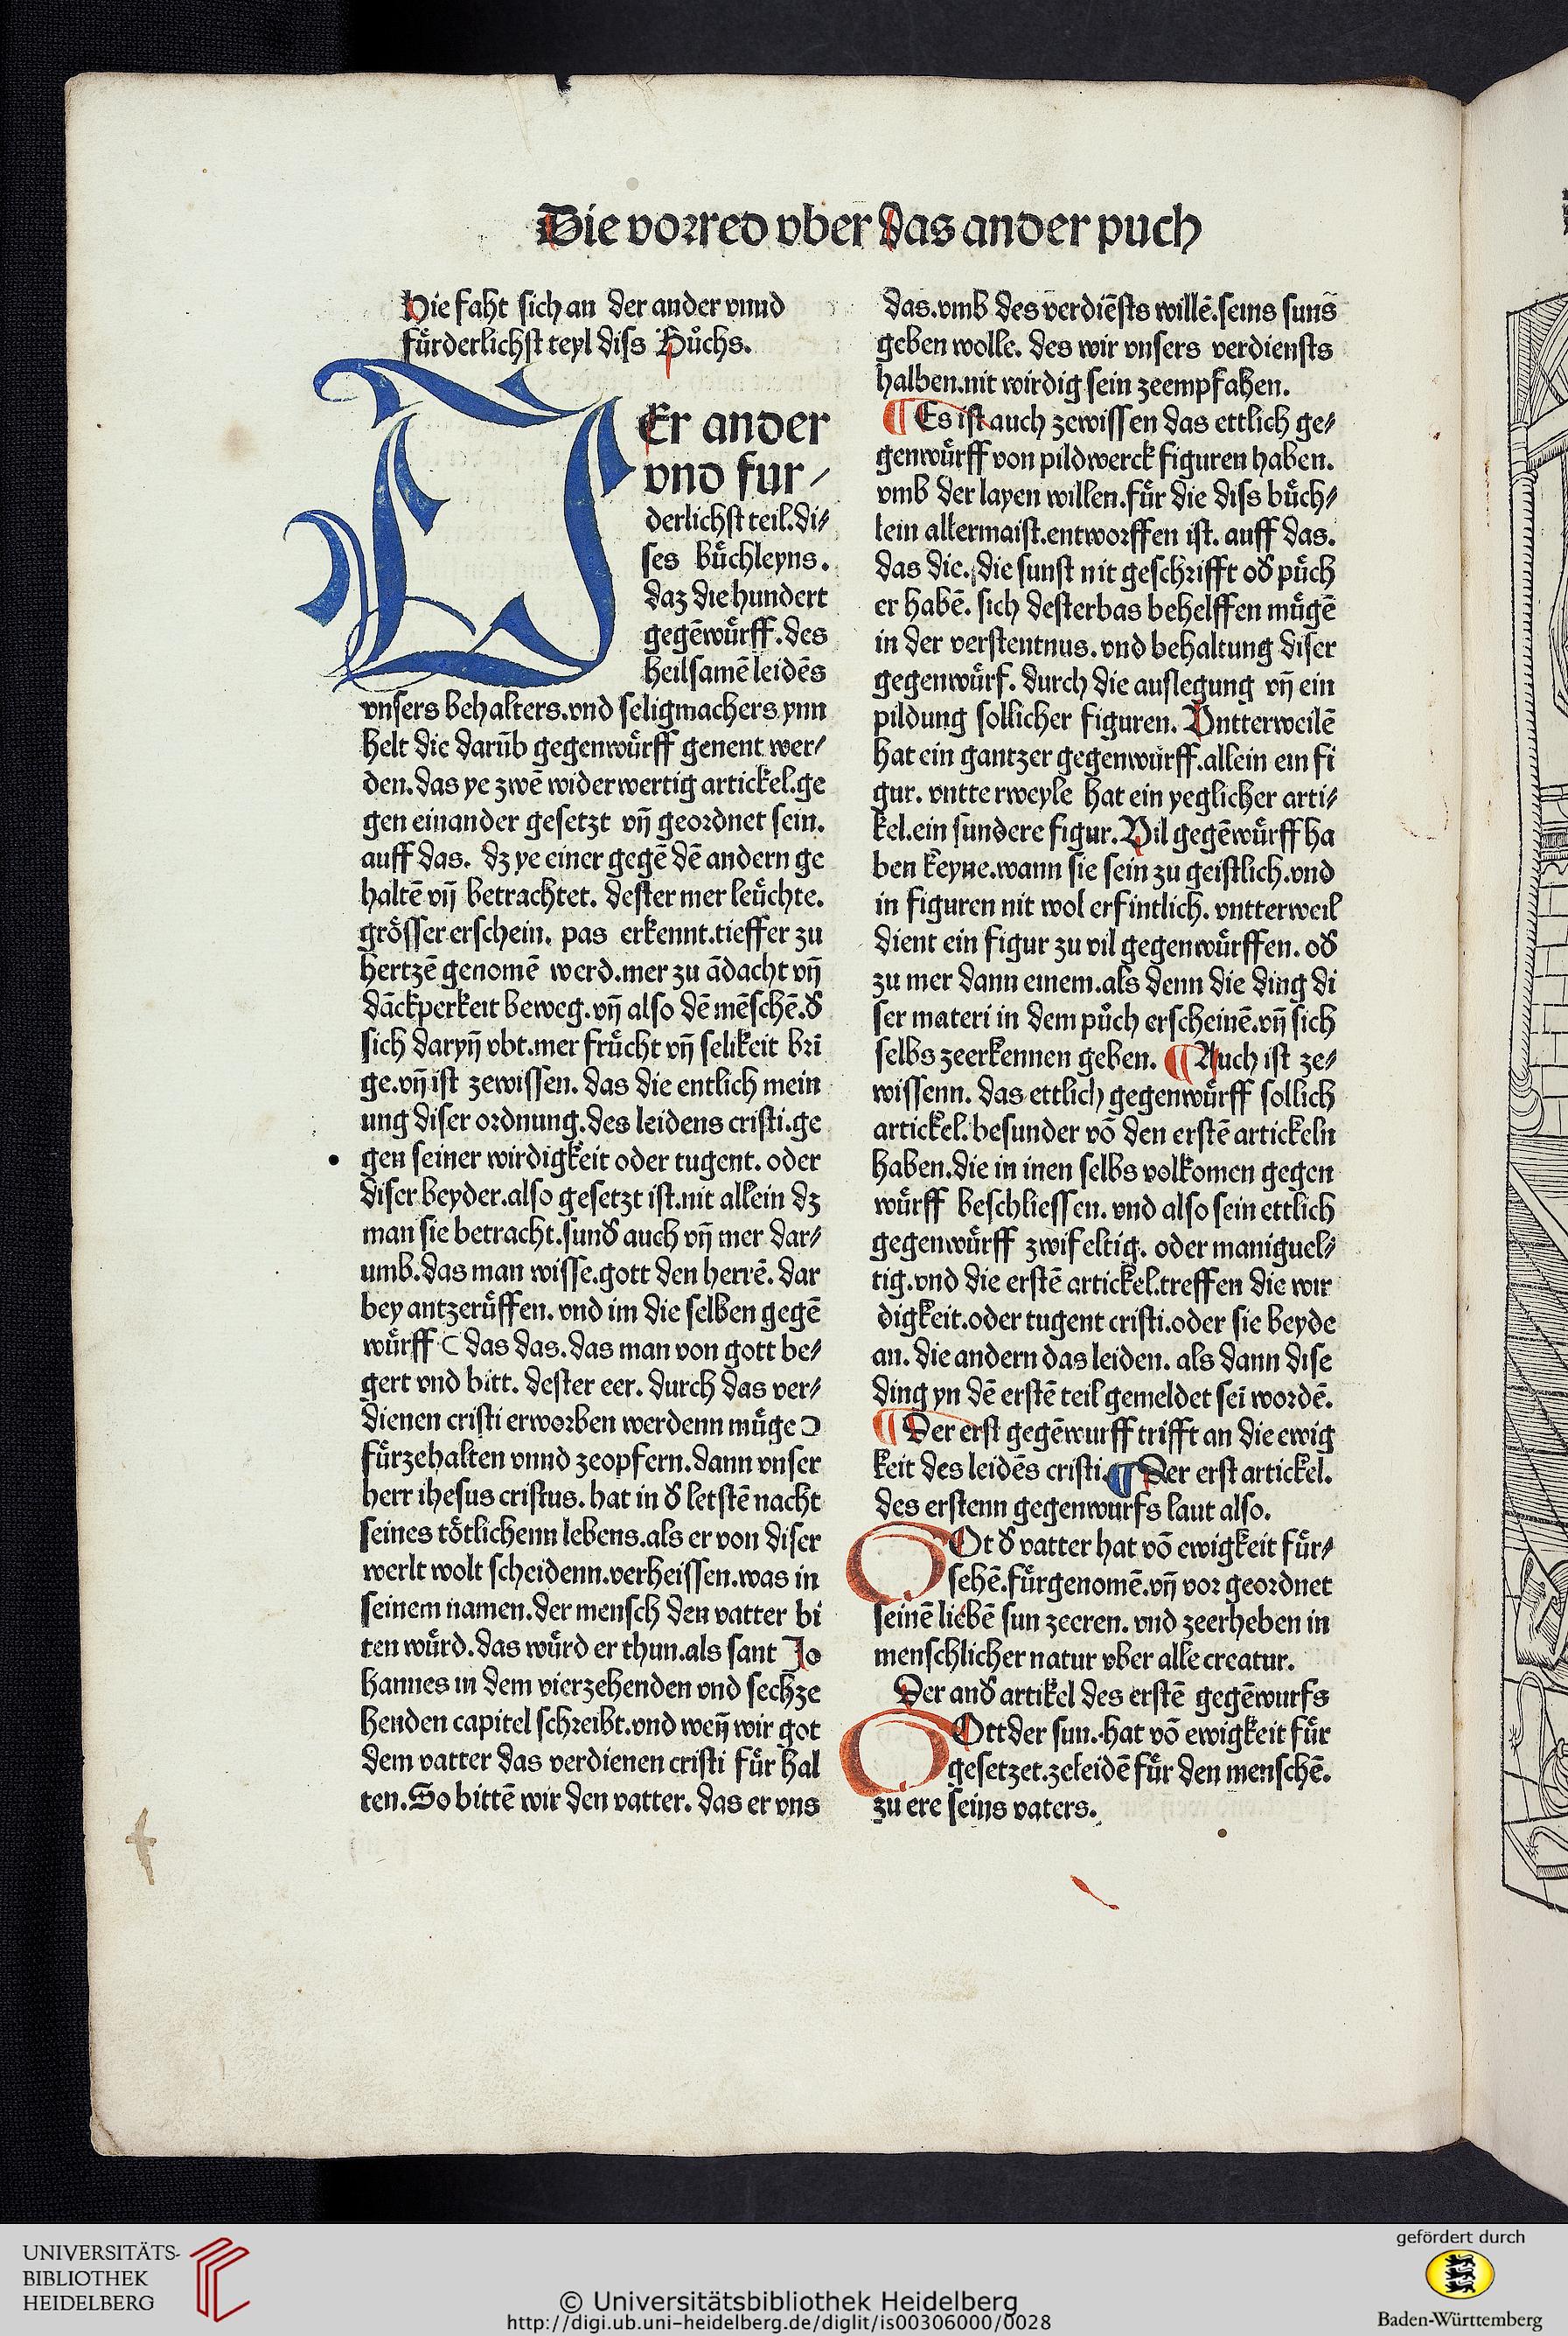 Die vorred vber das ander puch
Hie faht sich an der ander vnnd
fürderlichst teyl diss Bůchs.
DEr ander
vnd fur⸗
derlichst teil.di⸗
ses büchleyns.
daz die hundert
gegēwürff.des
heilsamē leidēs
vnsers behalters.vnd seligmachers ynn
helt die darūb gegenwürff genent wer⸗
den.das ye zwē widerwertig artickel.ge
gen einander gesetzt vn̄ geordnet sein.
auff das. dz ye einer gegē dē andern ge
haltē vn̄ betrachtet. dester mer leüchte.
grösser erschein. pas erkennt.tieffer zu
hertzē genomē werd.mer zu ādacht vn̄
dāckperkeit beweg.vn̄ also dē mēschē.đ
sich daryn̄ vbt.mer frücht vn̄ selikeit brī
ge.vn̄ ist zewissen. das die entlich mein
ung diser ordnung.des leidens cristi.ge
gen seiner wirdigkeit oder tugent. oder
diser beyder.also gesetzt ist.nit allein dz
man sie betracht.sunđ auch vn̄ mer dar⸗
umb.das man wisse.gott den herrē. dar
bey antzerüffen. vnd im die selben gegē
würff ⊂ das das.das man von gott be⸗
gert vnd bitt. dester eer. durch das ver⸗
dienen cristi erworben werdenn müge ⊃
fürzehalten vnnd zeopfern.dann vnser
herr ihesus cristus. hat in đ letstē nacht
seines tötlichenn lebens.als er von diser
werlt wolt scheidenn.verheissen.was in
seinem namen.der mensch den vatter bi
ten würd.das würd er thun.als sant Jo
hannes in dem vierzehenden vnd sechze
henden capitel schreibt.vnd wen̄ wir got
dem vatter das verdienen cristi für hal
ten.So bittē wir den vatter. das er vns
das.vmb des verdiēsts willē.seins suns
geben wolle. des wir vnsers verdiensts
halben.nit wirdig sein zeempfahen.
¶ Es ist auch zewissen das ettlich ge⸗
genwürff von pildwerck figuren haben.
vmb der layen willen.für die diss büch⸗
lein allermaist.entworffen ist. auff das.
das die. die sunst nit geschrifft ođ püch
er habē. sich desterbas behelffen mügē
in der verstentnus. vnd behaltung diser
gegenwürf. durch die auslegung vn̄ ein
pildung sollicher figuren. Vntterweilē
hat ein gantzer gegenwürff.allein ein fi
gur. vntterweyle hat ein yeglicher arti⸗
kel.ein sundere figur. Vil gegēwürff ha
ben keyne.wann sie sein zu geistlich.vnd
in figuren nit wol erfintlich. vntterweil
dient ein figur zu vil gegenwürffen. ođ
zu mer dann einem.als denn die ding di
ser materi in dem půch erscheinē.vn̄ sich
selbs zeerkennen geben. ¶ Auch ist ze⸗
wissenn. das ettlich gegenwürff sollich
artickel.besunder vō den erstē artickeln
haben.die in inen selbs volkomen gegen
würff beschliessen. vnd also sein ettlich
gegenwürff zwifeltig. oder maniguel⸗
tig.vnd die erstē artickel.treffen die wir
digkeit.oder tugent cristi.oder sie beyde
an. die andern das leiden. als dann dise
ding yn dē erstē teil gemeldet sei wordē.
¶ Der erst gegēwurff trifft an die ewig
keit des leidēs cristi. ¶ Der erst artickel.
des erstenn gegenwurfs laut also.
GOt đ vatter hat vō ewigkeit für⸗
sehē.fürgenomē.vn̄ vor geordnet
seinē liebē sun zeeren. vnd zeerheben in
menschlicher natur vber alle creatur.
Der anđ artikel des erstē gegēwurfs
GOtt der sun.hat vō ewigkeit für
gesetzet.zeleidē für den menschē.
zu ere seins vaters.
UNIVERSITÄTS-
BIBLIOTHEK
HEIDELBERG
© Universitätsbibliothek Heidelberg
http://digi.ub.uni-heidelberg.de/diglit/is00306000/0028
gefördert durch
Baden-Württemberg